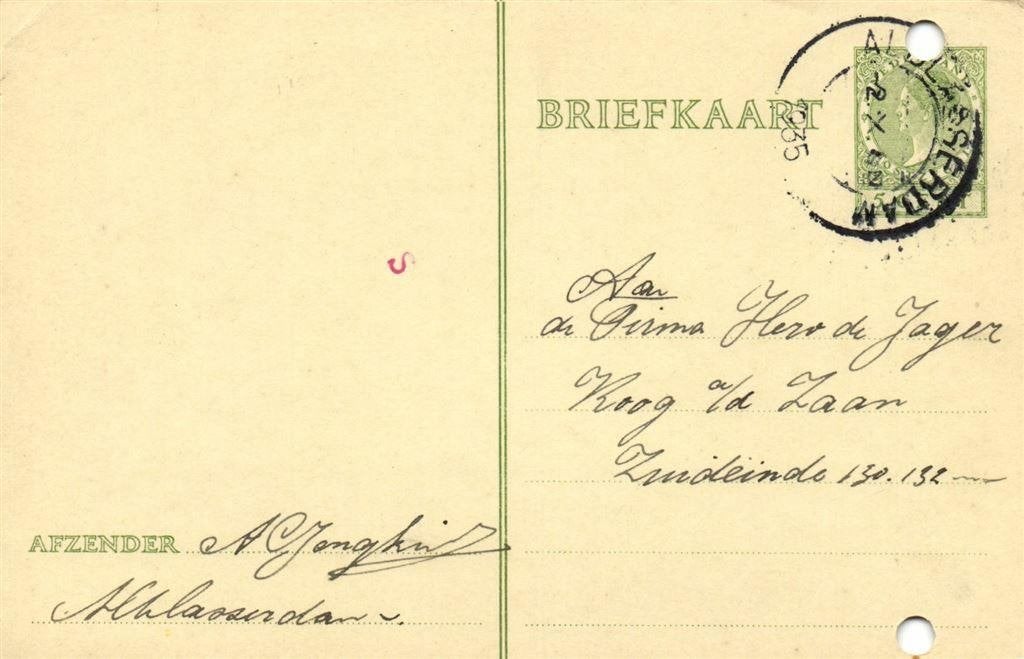 BRIEFKAART
ALBLASSERDAM
1935
5
S
Aan
de Firma Hero de Jager
Koog a/d Zaan
Zuideinde 130.132
AFZENDER A C Jongkind
Alblasserdam